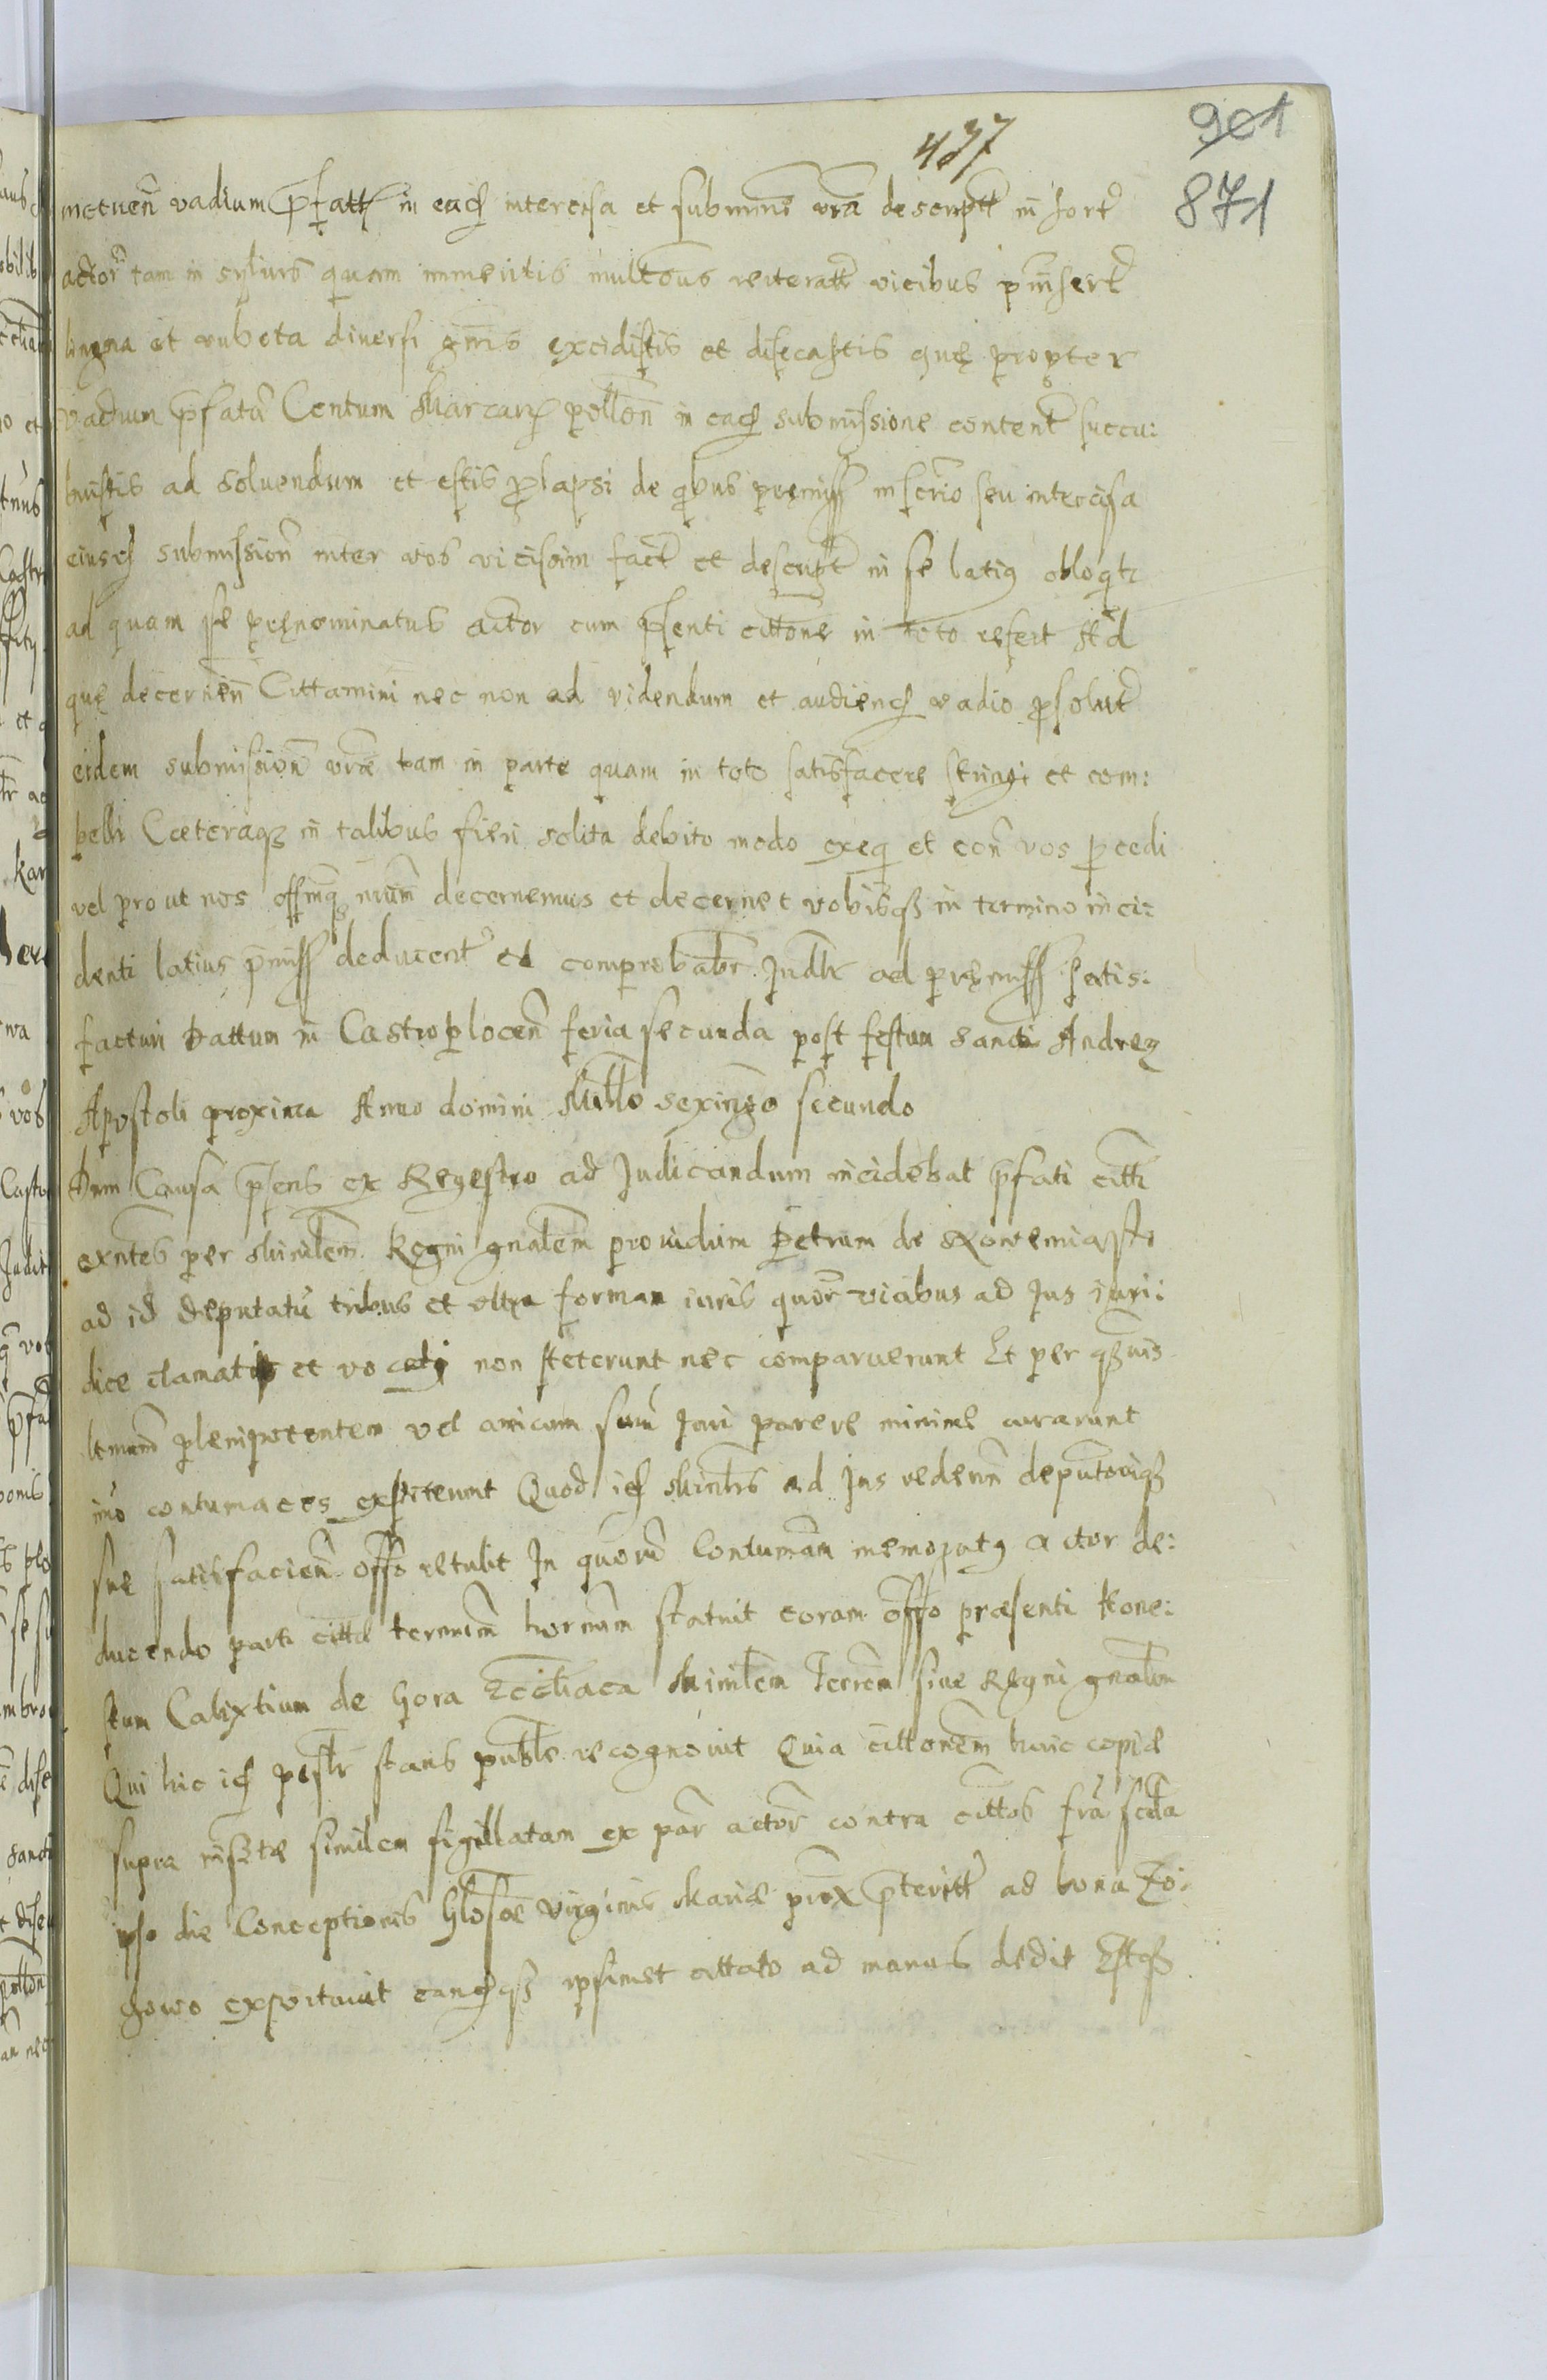 437
901
871
metuen̄ vadium p̄fatt in eadꝫ intercisa et submiss vrā descriptt in sort
actor̄ tam in sylvis quam immeritis multous reiteratt vicibus p̄insert
lingna et rubeta diuersi gnīs excidistis et disecastis quę propter
vadium p̄fatū Centum Marcarꝫ pollon̄ in eadꝫ submissione content succu:
buistis ad soluendum et estis prolapsi de qbus pręmiss inscrio seu intercisa
eiusdꝫ submission̄ inter vos vicissim fact et descript in se latiꝰ obloqtr
ad quam se pręnominatus actor cum p̄senti cittone in toto refert Ad
quę decernen̄ Cittamini nec non ad videndum et audiendꝫ vadio p̄solut
eidem submission̄ vrae tam in parte quam in toto satisfacere stringi et com:
pelli Caeteraqꝫ in talibus fieri solita debito modo exeq et con̄ vos pcedi
vel prout nos offmqꝫ nrum̄ decernemus et decernet vobisqꝫ in termino inci:
denti latius p̄miss deducent et comprobabr Judtr ad pręmiss satis:
facturi Dattum in Castro plocen̄ feria secunda post festum sancti Andreę
Apostoli proxima Anno domini Millo sexingo secundo
Dum Causa p̄sens ex Regestro ad Judicandum incidebat p̄fati citti
exntes per Minilem̄ Regni gnalem̄ prouidum Petrum de
ad id deputatū tribus et vltra formam iuris quor̄ vicibus ad Jus iuri:
dice clamati et vocati non steterunt nec comparuerunt Et per qꝫuis
plenipotentem vel amicum suū Juri parere minime curarunt
imo contumaces exstiterunt Quod idꝫ Minlris ad Jus redden̄ deputtoriqꝫ
sue satisfacien̄ offo retulit In quorū Contumām memoratꝰ actor de:
ducendo parti citta terminm̄ hornum statuit coram offo praesenti Hone:
stum Calixtium de Gora Minilem Terrm̄ siue Regni gnalem
Qui hic idꝫ pestr stans publē recognouit Quia cittonem̄ huic copiae
supra insrtae similem sigillatam ex par actor̄ contra cittos frā scda
ipso die Conceptionis Glosae virginis Mariae prox p̄teritt ad bona Zo:
gowo exportauit eandꝫqꝫ ipsimet cittato ad manus dedit Estqꝫ